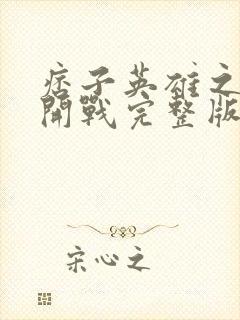 痞子英雄之
開戰完整版
宋心之